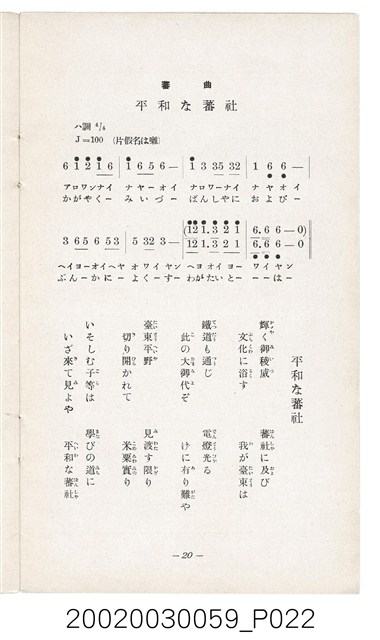 蕃曲
平和な蕃社
ハ調 4/4
J＝100 (片假名は囃)
6 1 2 1 6 | 1 6 5 6 — | 1 3 35 32 | 1 6 6 — |
アロワンナイ ナヤーオイ ナロワーナイ ナヤオイ
かがやくー みいづー ばんしやに およびー
(12 1. 3 2 1 | 6. 6 6 — 0)
3 6 5 6 5 3 | 5 32 3 — | 12 1. 3 2 1 | 6. 6 6 — 0
ヘイヨーオイヘヤ オワイヤン ヘヨオイヨー ワイヤン
ぶんーかにー よくーすー わがたいとー ーーはー
平和な蕃社
輝く御稜威 蕃社に及び
文化に浴す 我が臺東は
鐵道も通じ 電燈光る
此の大御代ぞ げに有り難や
臺東平野 見渡す限り
切り開かれて 米粟實り
いそしむ子等は 學びの道に
いざ來て見よや 平和な蕃社
— 20 —
20020030059_P022